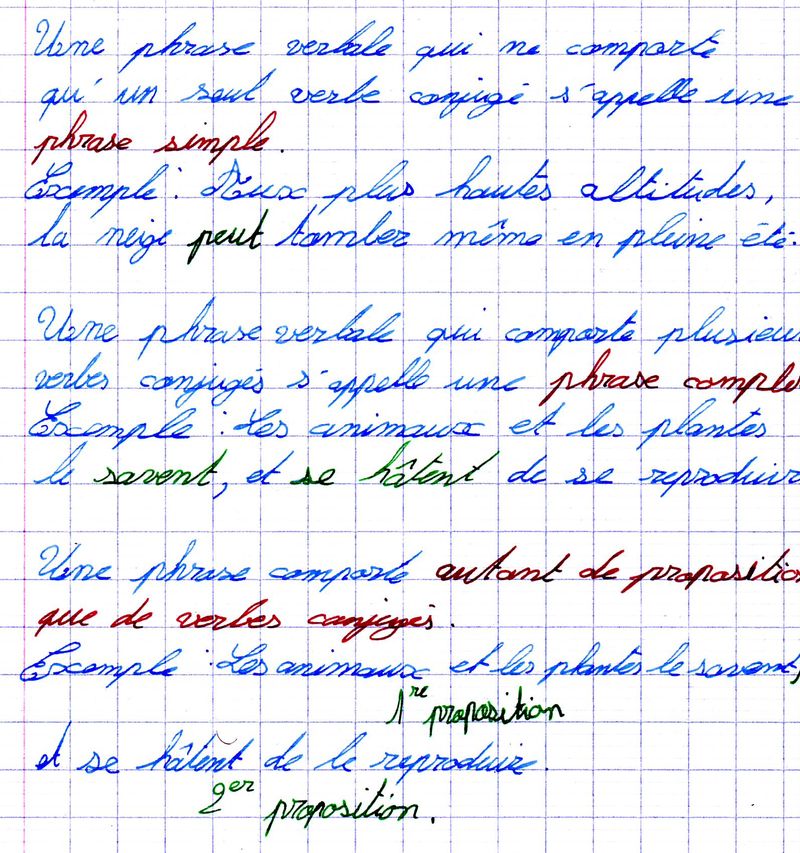 Une phrase verbale qui ne comporte
qu'un seul verbe conjugé s'appelle une
phrase simple.
Exemple : Aux plus hautes altitudes,
la neige peut tomber même en pleine été.
Une phrase verbale qui comporte plusieur
verbes conjugés s'appelle une phrase comple
Exemple : Les animaux et les plantes
le savent, et se hâtent de se reproduir
Une phrase comporte autant de propositio
que de verbes conjugés.
Exemple : Les animaux et les plantes le savent,
1re proposition
et se hâtent de le reproduire.
2er proposition.